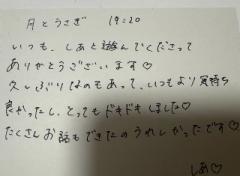 月とうさぎ 19:20
いつも、しあと遊んでくださって
ありがとうございます♡
久しぶりなのもあって、いつもより気持ち
良かったし、とってもドキドキしました♡
たくさんお話もできたのうれしかったです♡
しあ♡